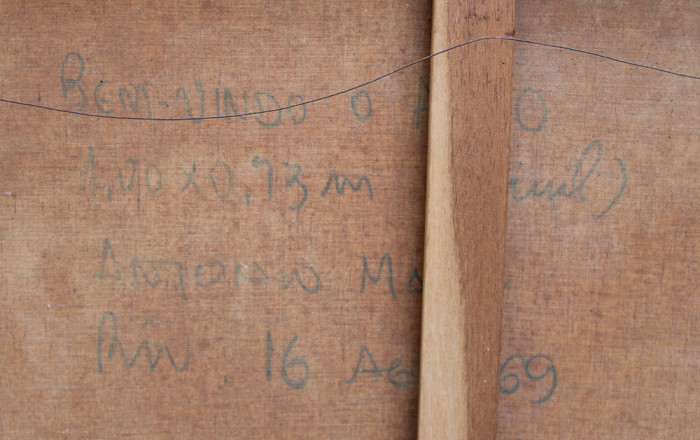 BEM-VINDO O
1,00 x 0,73 m
ANTONIO MA
Rio, 16 AG 69